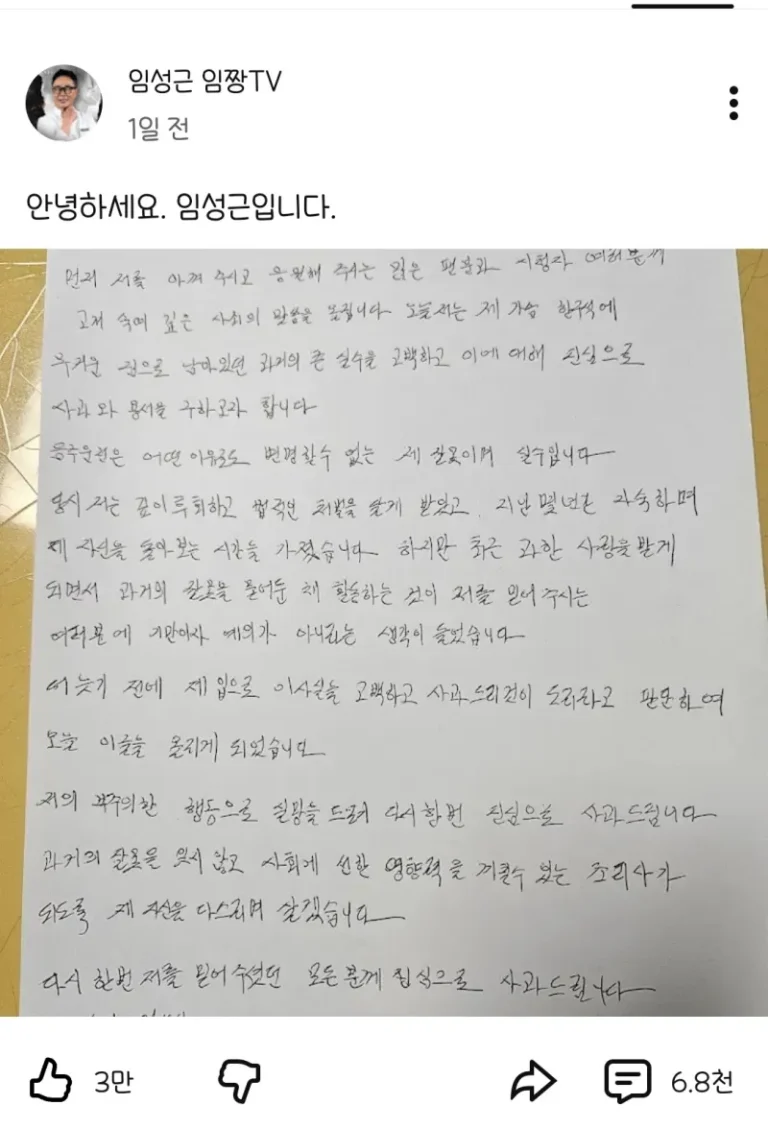 임성근 임짱TV
1일 전
안녕하세요. 임성근입니다.
먼저 저를 아껴 주시고 응원해 주시는 많은 팬분과 시청자 여러분께
고개 숙여 깊은 사죄의 말씀을 올립니다 오늘 저는 제 가슴 한구석에
무거운 짐으로 남아있던 과거의 큰 실수를 고백하고 이에 대해 진심으로
사과와 용서를 구하고자 합니다
음주운전은 어떤 이유로도 변명할수 없는 제 잘못이며 실수입니다
당시 저는 깊이 뉘하고 법적인 처벌을 달게 받았고. 지난 몇년간 자숙하며
제 자신을 돌아보는 시간을 가졌습니다 하지만 최근 과한 사랑을 받게
되면서 과거의 잘못을 묻어둔 채 활동하는 것이 저를 믿어 주시는
여러분에 기만이자 예의가 아니라는 생각이 들었습니다
더 늦기 전에 제 입으로 이사실을 고백하고 사과드리것이 도리라고 판단하여
오늘 이글을 올리게 되었습니다
저의 부주의한 행동으로 실망을 드려 다시한번 진심으로 사과드립니다
과거의 잘못을 잊지 않고 사회에 선한 영향력을 끼칠수 있는 조리사가
되도록 제 자신을 다스리며 살겠습니다
다시 한번 저를 믿어주셨던 모든 분께 진심으로 사과드립니다
3만
6.8천